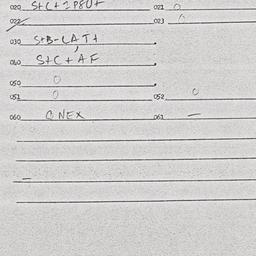 020 S+C+IP80+ 021 0
022 023 0
030 S+B-CAT+
040 S+C+AF
050 0
051 0 052 0
060 CNEX 061 —